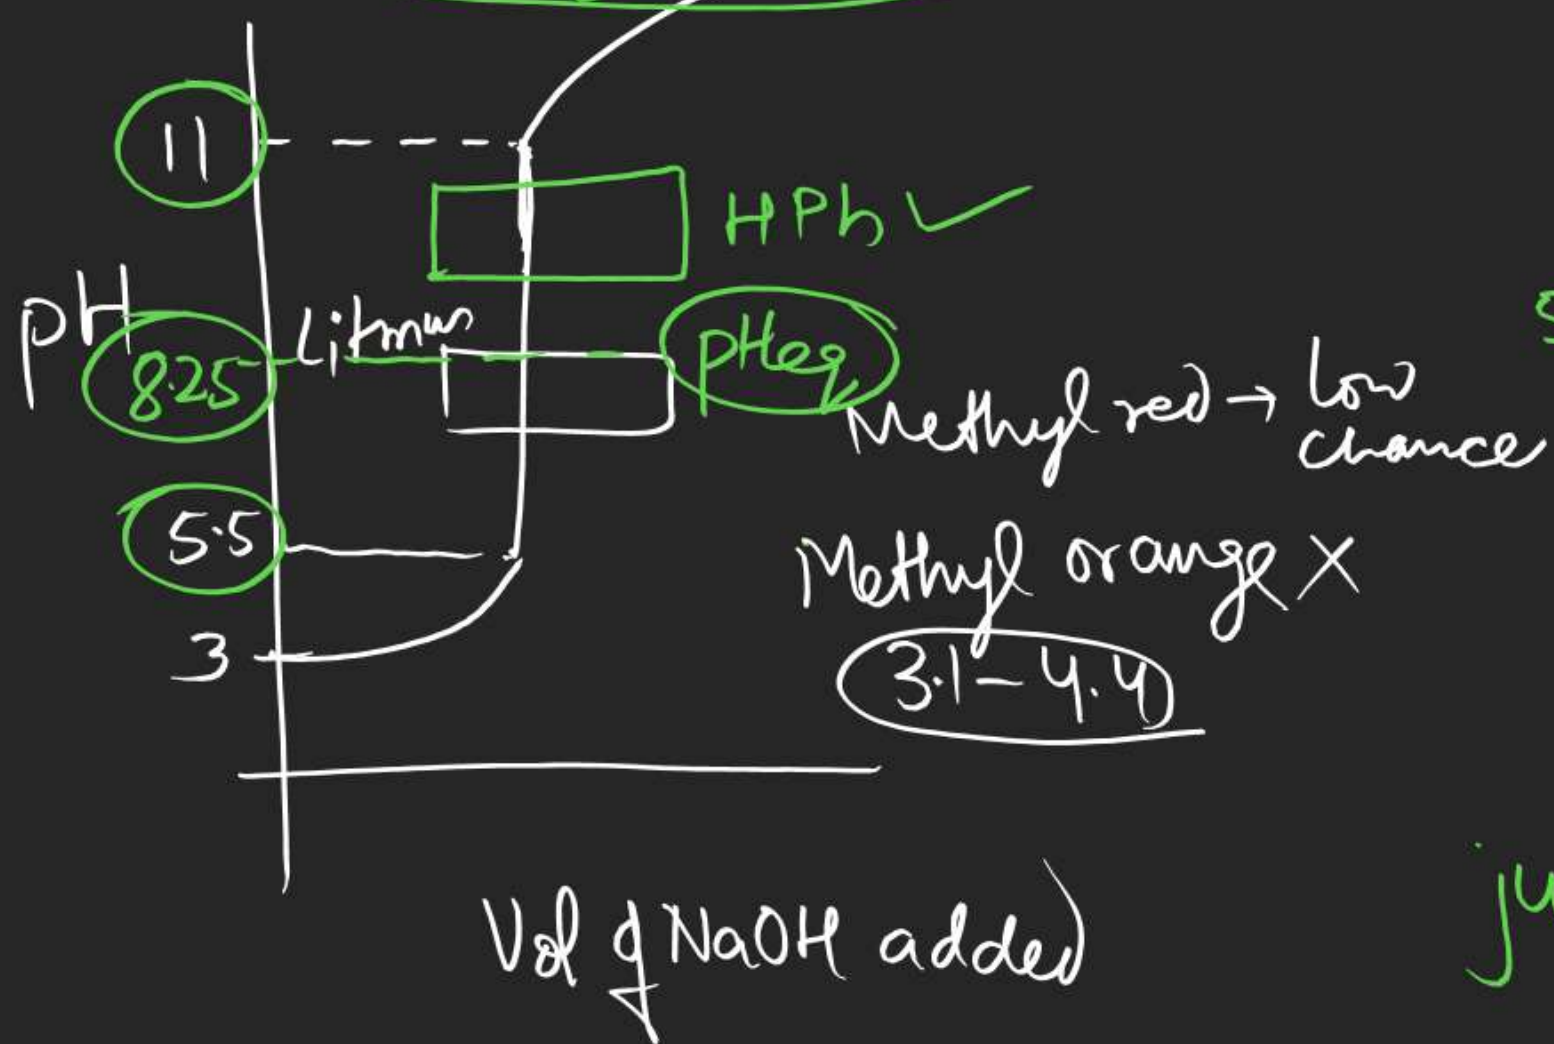 11
HPh ✓
pH
Litmus
8.25
pHeq
Methyl red → low
chance
5.5
Methyl orange ×
3
3.1 - 4.4
Vol of NaOH added